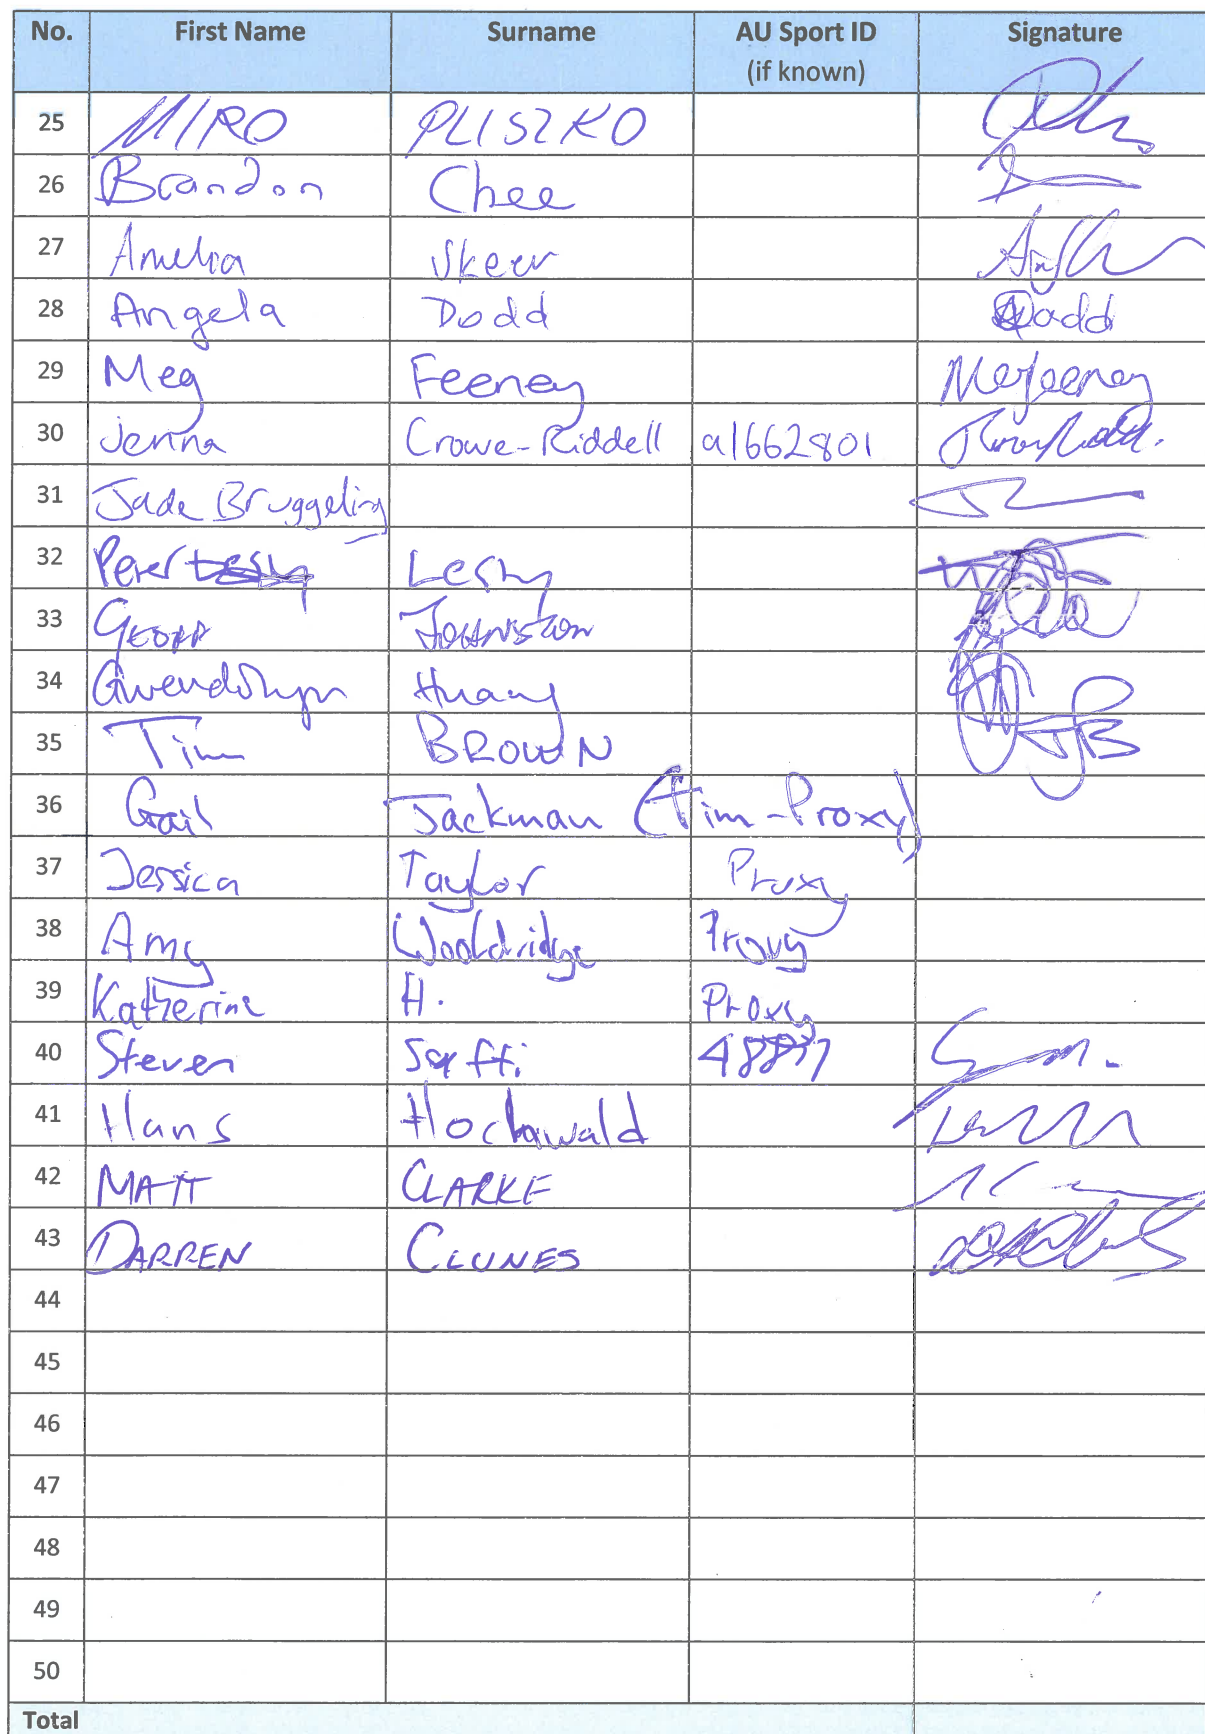 No. First Name Surname AU Sport ID Signature
(if known)
25 MIRO PLISZKO
26 Brandon Chee
27 Amelia Skeer
28 Angela Dodd Dodd
29 Meg Feeney MegFeeney
30 Jenna Crowe-Riddell a1662801
31 Jade Bruggeling
32 Peter Lesty
33 GEOFF JOHNSTON
34 Gwendolyn Huang
35 Tim BROWN TJB
36 Gail Jackman (Tim-Proxy)
37 Jessica Taylor Proxy
38 Amy Wooldridge Proxy
39 Katherine H. Proxy
40 Steven
41 Hans
42 MATT CLARKE
43 DARREN CLUNES
44
45
46
47
48
49
50
Total